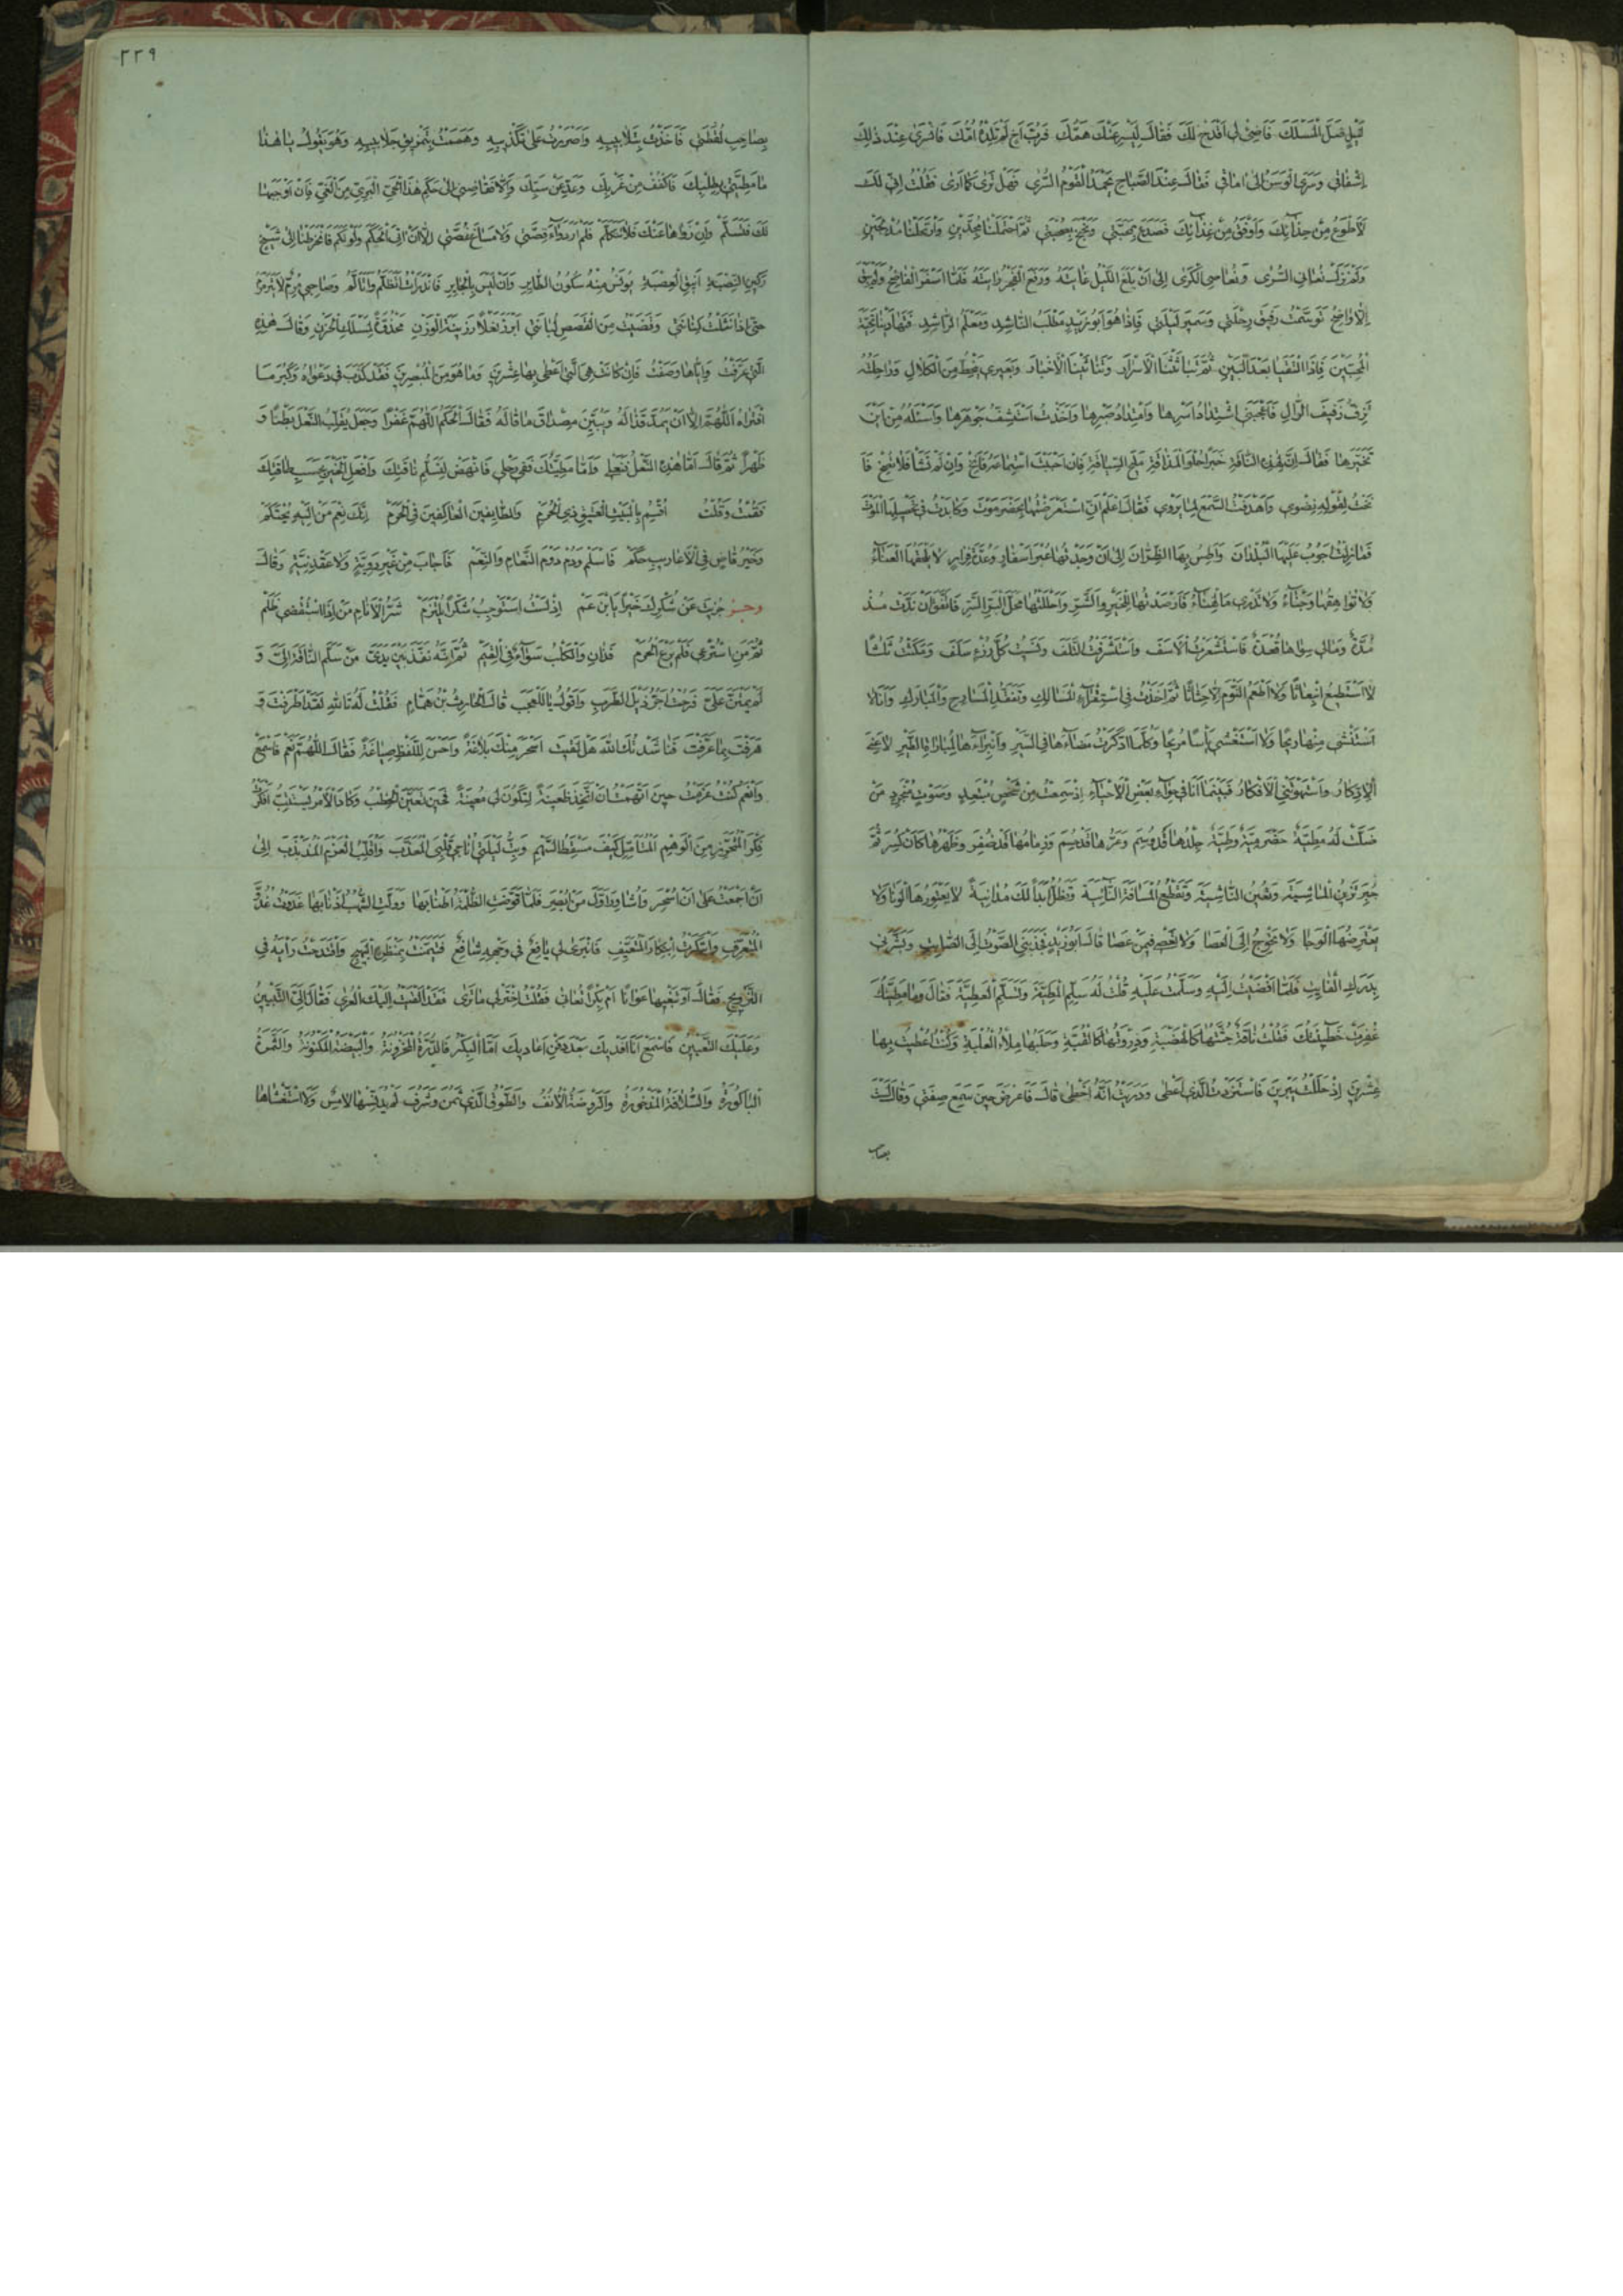 لَيْلٍ ضَلَّ الْمَسْلَكَ فَاَضِئْ لِي اَقْدَحْ لَكَ فَقَالَ لِيَسْرِ عَنْكَ هَمُّكَ فَرُبَّ اَخٍ لَمْ تَلِدْهُ اُمُّكَ فَانْسَرٰى عِنْدَ ذٰلِكَ
اِشْفَاقِي وَسَرَى الْوَسَنُ اِلٰى اٰمَاقِي فَقَالَ عِنْدَ الصَّبَاحِ يَحْمَدُ الْقَوْمُ السُّرٰى فَهَلْ تَرٰى كَمَا اَرٰى فَقُلْتُ اِنِّي لَكَ
لَاَطْوَعُ مِنْ حِذَآئِكَ وَاَوْفَقُ مِنْ غِذَآئِكَ فَصَدَعَ بِمَحَبَّتِي وَبَخْبَخَ بِصُحْبَتِي ثُمَّ احْتَمَلْنَا مُجِدَّيْنِ وَارْتَحَلْنَا مُدْلِجَيْنِ
وَلَمْ نَزَلْ نُعَانِي السُّرٰى وَنُعَاصِي الْكَرٰى اِلٰى اَنْ بَلَغَ اللَّيْلُ غَايَتَهُ وَرَفَعَ الْفَجْرُ رَايَتَهُ فَلَمَّا اَسْفَرَ الْفَاضِحُ وَلَمْ يَبْقَ
اِلَّا وَاضِحٌ تَوَسَّمْتُ رَفِيقَ رِحْلَتِي وَسَمِيرَ لَيْلَتِي فَاِذَا هُوَ اَبُو زَيْدٍ مَطْلَبُ النَّاشِدِ وَمَعْلَمُ الرَّاشِدِ فَتَهَادَيْنَا تَحِيَّةَ
الْمُحِبَّيْنِ اِذَا الْتَقَيَا بَعْدَ الْبَيْنِ ثُمَّ تَبَاثَثْنَا الْاَسْرَارَ وَتَنَاثَيْنَا الْاَخْبَارَ وَبَعِيرِي يَنْحِطُ مِنَ الْكَلَالِ وَرَاحِلَتُهُ
تَزِفُّ زَفِيفَ الرَّالِ فَاَعْجَبَنِي اشْتِدَادُ اَسْرِهَا وَامْتِدَادُ صَبْرِهَا وَاَخَذْتُ اَسْتَشِفُّ جَوْهَرَهَا وَاَسْئَلُهُ مِنْ اَيْنَ
تَخَيَّرَهَا فَقَالَ اِنَّ لِهٰذِهِ النَّاقَةِ خَبَرًا حُلْوَ الْمَذَاقَةِ مَلِيحَ السِّيَاقَةِ فَاِنْ اَحْبَبْتَ اسْتِمَاعَهُ فَاَنِخْ وَاِنْ لَمْ تَشَأْ فَلَا تُصِخْ فَاَ
نَخْتُ لِقَوْلِهِ نِضْوِي وَاَهْدَفْتُ السَّمْعَ لِمَا يَرْوِي فَقَالَ اِعْلَمْ اَنِّي اسْتَعْرَضْتُهَا بِحَضْرَمَوْتَ وَكَابَدْتُ فِي تَحْصِيلِهَا الْمَوْتَ
فَمَا زِلْتُ اَجُوبُ عَلَيْهَا الْبُلْدَانَ وَاَطِسُ بِهَا الظِّرَّانَ اِلٰى اَنْ وَجَدْتُهَا عُبْرَ اَسْفَارٍ وَعُدَّةَ قَرَارٍ لَا يَلْحَقُهَا الْعَنَآءُ
وَلَا تُوَاهِقُهَا وَجْنَآءُ وَلَا تَدْرِي مَا الْهِنَآءُ فَاَرْصَدْتُهَا لِلْخَيْرِ وَالشَّرِّ وَاَحْلَلْتُهَا مَحَلَّ الْبَرِّ السَّرِّ فَاتَّفَقَ اَنْ نَدَّتْ مُذْ
مُدَّةٍ وَمَالِي سِوَاهَا قُعْدَةٌ فَاسْتَشْعَرْتُ الْاَسَفَ وَاسْتَشْرَفْتُ التَّلَفَ وَنَسِيتُ كُلَّ رُزْءٍ سَلَفَ وَمَكَثْتُ ثَلٰثًا
لَا اَسْتَطِيعُ انْبِعَاثًا وَلَا اَطْعَمُ النَّوْمَ اِلَّا حِثَاثًا ثُمَّ اَخَذْتُ فِي اسْتِقْرَآءِ الْمَسَالِكِ وَتَفَقُّدِ الْمَسَارِحِ وَالْمَبَارِكِ وَاَنَا لَا
اَسْتَنْشِي مِنْهَا رِيحًا وَلَا اَسْتَغْشِي يَأْسًا مُرِيحًا وَكُلَّمَا ادَّكَرْتُ مَضَآءَهَا فِي السَّيْرِ وَانْبِرَآءَهَا لِمُبَارَاةِ الطَّيْرِ لَاعَنِي
الْاِدِّكَارُ وَاسْتَهْوَتْنِي الْاَفْكَارُ فَبَيْنَمَا اَنَا فِي حِوَآءِ بَعْضِ الْاَحْيَآءِ اِذْ سَمِعْتُ مِنْ شَخْصٍ مُبْتَعِدٍ وَصَوْتٍ مُتَجَرِّدٍ مَنْ
ضَلَّتْ لَهُ مَطِيَّةٌ حَضْرَمِيَّةٌ وَطِيَّةٌ جِلْدُهَا قَدْ وُسِمَ وَعَرُّهَا قَدْ حُسِمَ وَزِمَامُهَا قَدْ ضُفِرَ وَظَهْرُهَا كَاَنْ كُسِرَ ثُمَّ
جُبِرَ تَزِينُ الْمَاشِيَةَ وَتُعِينُ النَّاشِيَةَ وَتَقْطَعُ الْمَسَافَةَ النَّآئِيَةَ وَتَظَلُّ اَبَدًا لَكَ مُدَانِيَةً لَا يَعْتَوِرُهَا الْوَنَا وَلَا
يَعْتَرِضُهَا الْوَجَا وَلَا تُحْوِجُ اِلَى الْعَصَا وَلَا تَعْصِي فِيمَنْ عَصَا قَالَ اَبُو زَيْدٍ فَجَذَبَنِي الصَّوْتُ اِلَى الصَّآئِتِ وَبَشَّرَنِي
بِدَرَكِ الْفَايِتِ فَلَمَّا اَفْضَيْتُ اِلَيْهِ وَسَلَّمْتُ عَلَيْهِ قُلْتُ لَهُ سَلِّمِ الْمَطِيَّةَ وَتَسَلَّمِ الْعَطِيَّةَ فَقَالَ وَمَا مَطِيَّتُكَ
غُفِرَتْ خَطِيئَتُكَ فَقُلْتُ نَاقَةٌ جُثَّتُهَا كَالْهَضْبَةِ وَذِرْوَتُهَا كَالْقُبَّةِ وَحَلَبُهَا مِلْأُ الْعُلْبَةِ وَكُنْتُ اُعْطِيتُ بِهَا
عِشْرِينَ اِذْ حَلَلْتُ يَبْرِينَ فَاسْتَزَدْتُ الَّذِي اَعْطٰى وَدَرَيْتُ اَنَّهُ اَخْطٰى قَالَ فَاَعْرَضَ حِينَ سَمِعَ صِفَتِي وَقَالَ لَسْتَ
بصاحب
٢٢٩
بِصَاحِبِ لُقْطَتِي فَاَخَذْتُ بِتَلَابِيبِهِ وَاَصْرَرْتُ عَلٰى تَكْذِيبِهِ وَهَمَمْتُ بِتَمْزِيقِ جَلَابِيبِهِ وَهُوَ يَقُولُ يَا هٰذَا
مَا مَطِيَّتِي بِطِلْبِكَ فَاكْفُفْ مِنْ غَرْبِكَ وَعَدِّ عَنْ سَبِّكَ وَاِلَّا فَقَاضِنِي اِلٰى حَكَمِ هٰذَا الْحَيِّ الْبَرِيِّ مِنَ الْغَيِّ فَاِنْ اَوْجَبَهَا
لَكَ فَتَسَلَّمْ وَاِنْ زَوَاهَا عَنْكَ فَلَا تَتَكَلَّمْ فَلَمْ اَرَ دَوَآءَ قِصَّتِي وَلَا مَسَاغَ غُصَّتِي اِلَّا اَنْ اٰتِيَ الْحَكَمَ وَلَوْ لَكَمَ فَانْخَرَطْنَا اِلٰى شَيْخٍ
رَكِينِ النِّصْبَةِ اَنِيقِ الْعِصْبَةِ يُونَسُ مِنْهُ سُكُونُ الطَّايِرِ وَاَنْ لَيْسَ بِالْجَايِرِ فَانْدَرَأْتُ اَتَظَلَّمُ وَاَتَاَلَّمُ وَصَاحِبِي مُرِمٌّ لَا يَتَرَمْرَمُ
حَتّٰى اِذَا نَثَلْتُ كِنَانَتِي وَقَضَيْتُ مِنَ الْقَصَصِ لُبَانَتِي اَبْرَزَ نَعْلًا رَزِينَةَ الْوَزْنِ مَحْذُوَّةً لِمَسْلَكِ الْحَزْنِ وَقَالَ هٰذِهِ
الَّتِي عَرَّفْتُ وَاِيَّاهَا وَصَفْتُ فَاِنْ كَانَتْ هِيَ الَّتِي اُعْطِيَ بِهَا عِشْرِينَ وَهَا هُوَ مِنَ الْمُبْصِرِينَ فَقَدْ كَذَبَ فِي دَعْوَاهُ وَكَبُرَ مَا
افْتَرَاهُ اَللّٰهُمَّ اِلَّا اَنْ يَمُدَّ قَذَالَهُ وَيُبَيِّنَ مِصْدَاقَ مَا قَالَهُ فَقَالَ الْحَكَمُ اَللّٰهُمَّ غَفْرًا وَجَعَلَ يُقَلِّبُ النَّعْلَ بَطْنًا وَ
ظَهْرًا ثُمَّ قَالَ اَمَّا هٰذِهِ النَّعْلُ فَنَعْلِي وَاَمَّا مَطِيَّتُكَ فَفِي رَحْلِي فَانْهَضْ لِتَسَلُّمِ نَاقَتِكَ وَافْعَلِ الْخَيْرَ بِحَسَبِ طَاقَتِكَ
فَقُمْتُ وَقُلْتُ اُقْسِمُ بِالْبَيْتِ الْعَتِيقِ ذِي الْحُرَمْ وَالطَّايِفِينَ الْعَاكِفِينَ فِي الْحَرَمْ اِنَّكَ نِعْمَ مَنْ اِلَيْهِ يُحْتَكَمْ
وَخَيْرُ قَاضٍ فِي الْاَعَارِيبِ حَكَمْ فَاسْلَمْ وَدُمْ دَوْمَ النَّعَامِ وَالنَّعَمْ فَاَجَابَ مِنْ غَيْرِ رَوِيَّةٍ وَلَا عَقْدِ نِيَّةٍ وَقَالَ
جُزِيتَ عَنْ شُكْرِكَ خَيْرًا يَا ابْنَ عَمْ اِذْ لَسْتُ اَسْتَوْجِبُ شُكْرًا يُلْتَزَمْ شَرُّ الْاَنَامِ مَنْ اِذَا اسْتُقْضِيَ ظَلَمْ
ثُمَّ مَنِ اسْتُرْعِيَ فَلَمْ يَرْعَ الْحُرَمْ فَذَانِ وَالْكَلْبُ سَوَآءٌ فِي الْقِيَمْ ثُمَّ اِنَّهُ نَفَّذَ بَيْنَ يَدَيَّ مَنْ سَلَّمَ النَّاقَةَ اِلَيَّ وَ
لَمْ يَمْتَنَّ عَلَيَّ فَرُحْتُ اَجُرُّ ذَيْلَ الطَّرَبِ وَاَقُولُ يَا لَلْعَجَبِ قَالَ الْحَارِثُ بْنُ هَمَّامٍ فَقُلْتُ لَهُ تَاللّٰهِ لَقَدْ اَطْرَفْتَ وَ
هَرَفْتَ بِمَا عَرَفْتَ فَنَاشَدْتُكَ اللّٰهَ هَلْ لَقِيتَ اَسْحَرَ مِنْكَ بَلَاغَةً وَاَحْسَنَ لِلَّفْظِ صِيَاغَةً فَقَالَ اَللّٰهُمَّ نَعَمْ فَاسْمَعْ
وَانْعَمْ كُنْتُ عَزَمْتُ حِينَ اَتْهَمْتُ اَنْ اَتَّخِذَ ظَعِينَةً لِتَكُونَ لِي مُعِينَةً فَحِينَ تَعَيَّنَ الْخِطْبُ وَكَادَ الْاَمْرُ يَسْتَتِبُّ اَفْكَرْتُ
فِكْرَ الْمُتَحَرِّزِ مِنَ الْوَهْمِ الْمُتَأَمِّلِ كَيْفَ مَسْقِطُ السَّهْمِ وَبِتُّ لَيْلَتِي اُنَاجِي قَلْبِيَ الْمُعَذَّبَ وَاُقَلِّبُ الْعَزْمَ الْمُذَبْذَبَ اِلٰى
اَنْ اَجْمَعْتُ عَلٰى اَنْ اُسْحِرَ وَاُشَاوِرَ اَوَّلَ مَنْ اُبْصِرَ فَلَمَّا قَوَّضَتِ الظُّلْمَةُ اَطْنَابَهَا وَوَلَّتِ الشُّهُبُ اَذْنَابَهَا غَدَوْتُ غُدُوَّ
الْمُتَعَرِّفِ وَابْتَكَرْتُ ابْتِكَارَ الْمُتَعَيِّفِ فَانْبَرٰى لِي يَافِعٌ فِي وَجْهِهِ شَافِعٌ فَتَيَمَّنْتُ بِمَنْظَرِهِ الْبَهِيجِ وَاقْتَدَحْتُ رَأْيَهُ فِي
التَّزْوِيجِ فَقَالَ اَوَتَبْغِيهَا عَوَانًا اَمْ بِكْرًا تُعَانٰى فَقُلْتُ اخْتَرْ لِي مَا تَرٰى فَقَدْ اَلْقَيْتُ اِلَيْكَ الْعُرٰى فَقَالَ اِلَيَّ التَّبْيِينُ
وَعَلَيْكَ التَّعْيِينُ فَاسْمَعْ اَنَا اَفْدِيكَ بَعْدَ دَفْنِ اَعَادِيكَ اَمَّا الْبِكْرُ فَالدُّرَّةُ الْمَخْزُونَةُ وَالْبَيْضَةُ الْمَكْنُونَةُ وَالثَّمَرَةُ
الْبَاكُورَةُ وَالسُّلَافَةُ الْمَذْخُورَةُ وَالرَّوْضَةُ الْاُنُفُ وَالطَّوْقُ الَّذِي ثَمُنَ وَشَرُفَ لَمْ يُدَنِّسْهَا لَامِسٌ وَلَا اسْتَغْشَاهَا